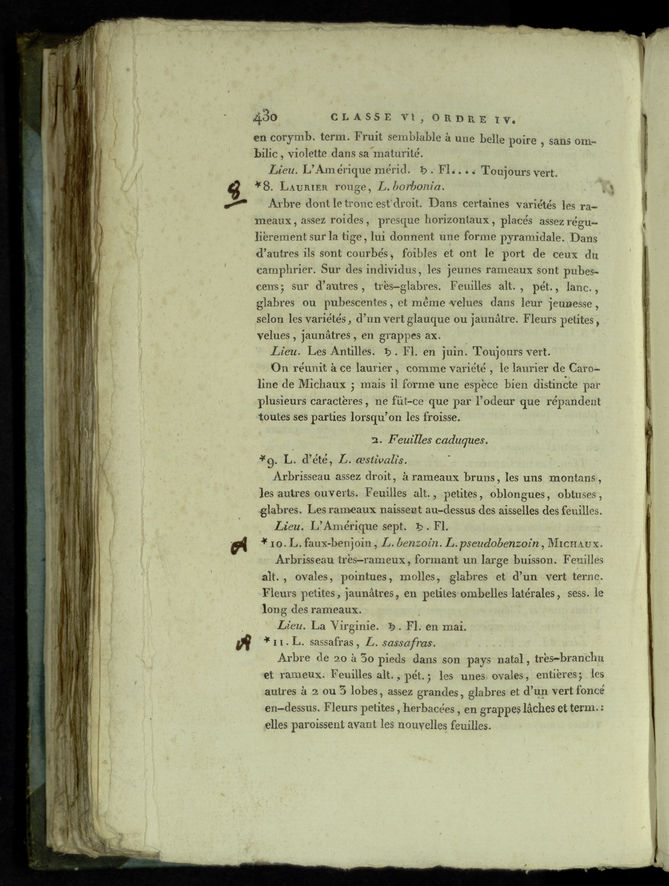 430 CLASSE VI, ORDRE IV.
en corymb. term. Fruit semblable à une belle poire, sans om-
bilic, violette dans sa maturité.
Lieu. L'Amérique mérid. ♄. Fl.... Toujours vert.
8 *8. LAURIER rouge, L. borbonia.
Arbre dont le tronc est droit. Dans certaines variétés les ra-
meaux, assez roides, presque horizontaux, placés assez régu-
lièrement sur la tige, lui donnent une forme pyramidale. Dans
d'autres ils sont courbés, foibles et ont le port de ceux du
camphrier. Sur des individus, les jeunes rameaux sont pubes-
cens; sur d'autres, très-glabres. Feuilles alt., pét., lanc.,
glabres ou pubescentes, et même velues dans leur jeunesse,
selon les variétés, d'un vert glauque ou jaunâtre. Fleurs petites,
velues, jaunâtres, en grappes ax.
Lieu. Les Antilles. ♄. Fl. en juin. Toujours vert.
On réunit à ce laurier, comme variété, le laurier de Caro-
line de Michaux; mais il forme une espèce bien distincte par
plusieurs caractères, ne fût-ce que par l'odeur que répandent
toutes ses parties lorsqu'on les froisse.
2. Feuilles caduques.
*9. L. d'été, L. æstivalis.
Arbrisseau assez droit, à rameaux bruns, les uns montans,
les autres ouverts. Feuilles alt., petites, oblongues, obtuses,
glabres. Les rameaux naissent au-dessus des aisselles des feuilles.
Lieu. L'Amérique sept. ♄. Fl.
*10. L. faux-benjoin, L. benzoin. L. pseudobenzoin, MICHAUX.
Arbrisseau très-rameux, formant un large buisson. Feuilles
alt., ovales, pointues, molles, glabres et d'un vert terne.
Fleurs petites, jaunâtres, en petites ombelles latérales, sess. le
long des rameaux.
Lieu. La Virginie. ♄. Fl. en mai.
*11. L. sassafras, L. sassafras.
Arbre de 20 à 30 pieds dans son pays natal, très-branchu
et rameux. Feuilles alt., pét.; les unes ovales, entières; les
autres à 2 ou 3 lobes, assez grandes, glabres et d'un vert foncé
en-dessus. Fleurs petites, herbacées, en grappes lâches et term.:
elles paroissent avant les nouvelles feuilles.